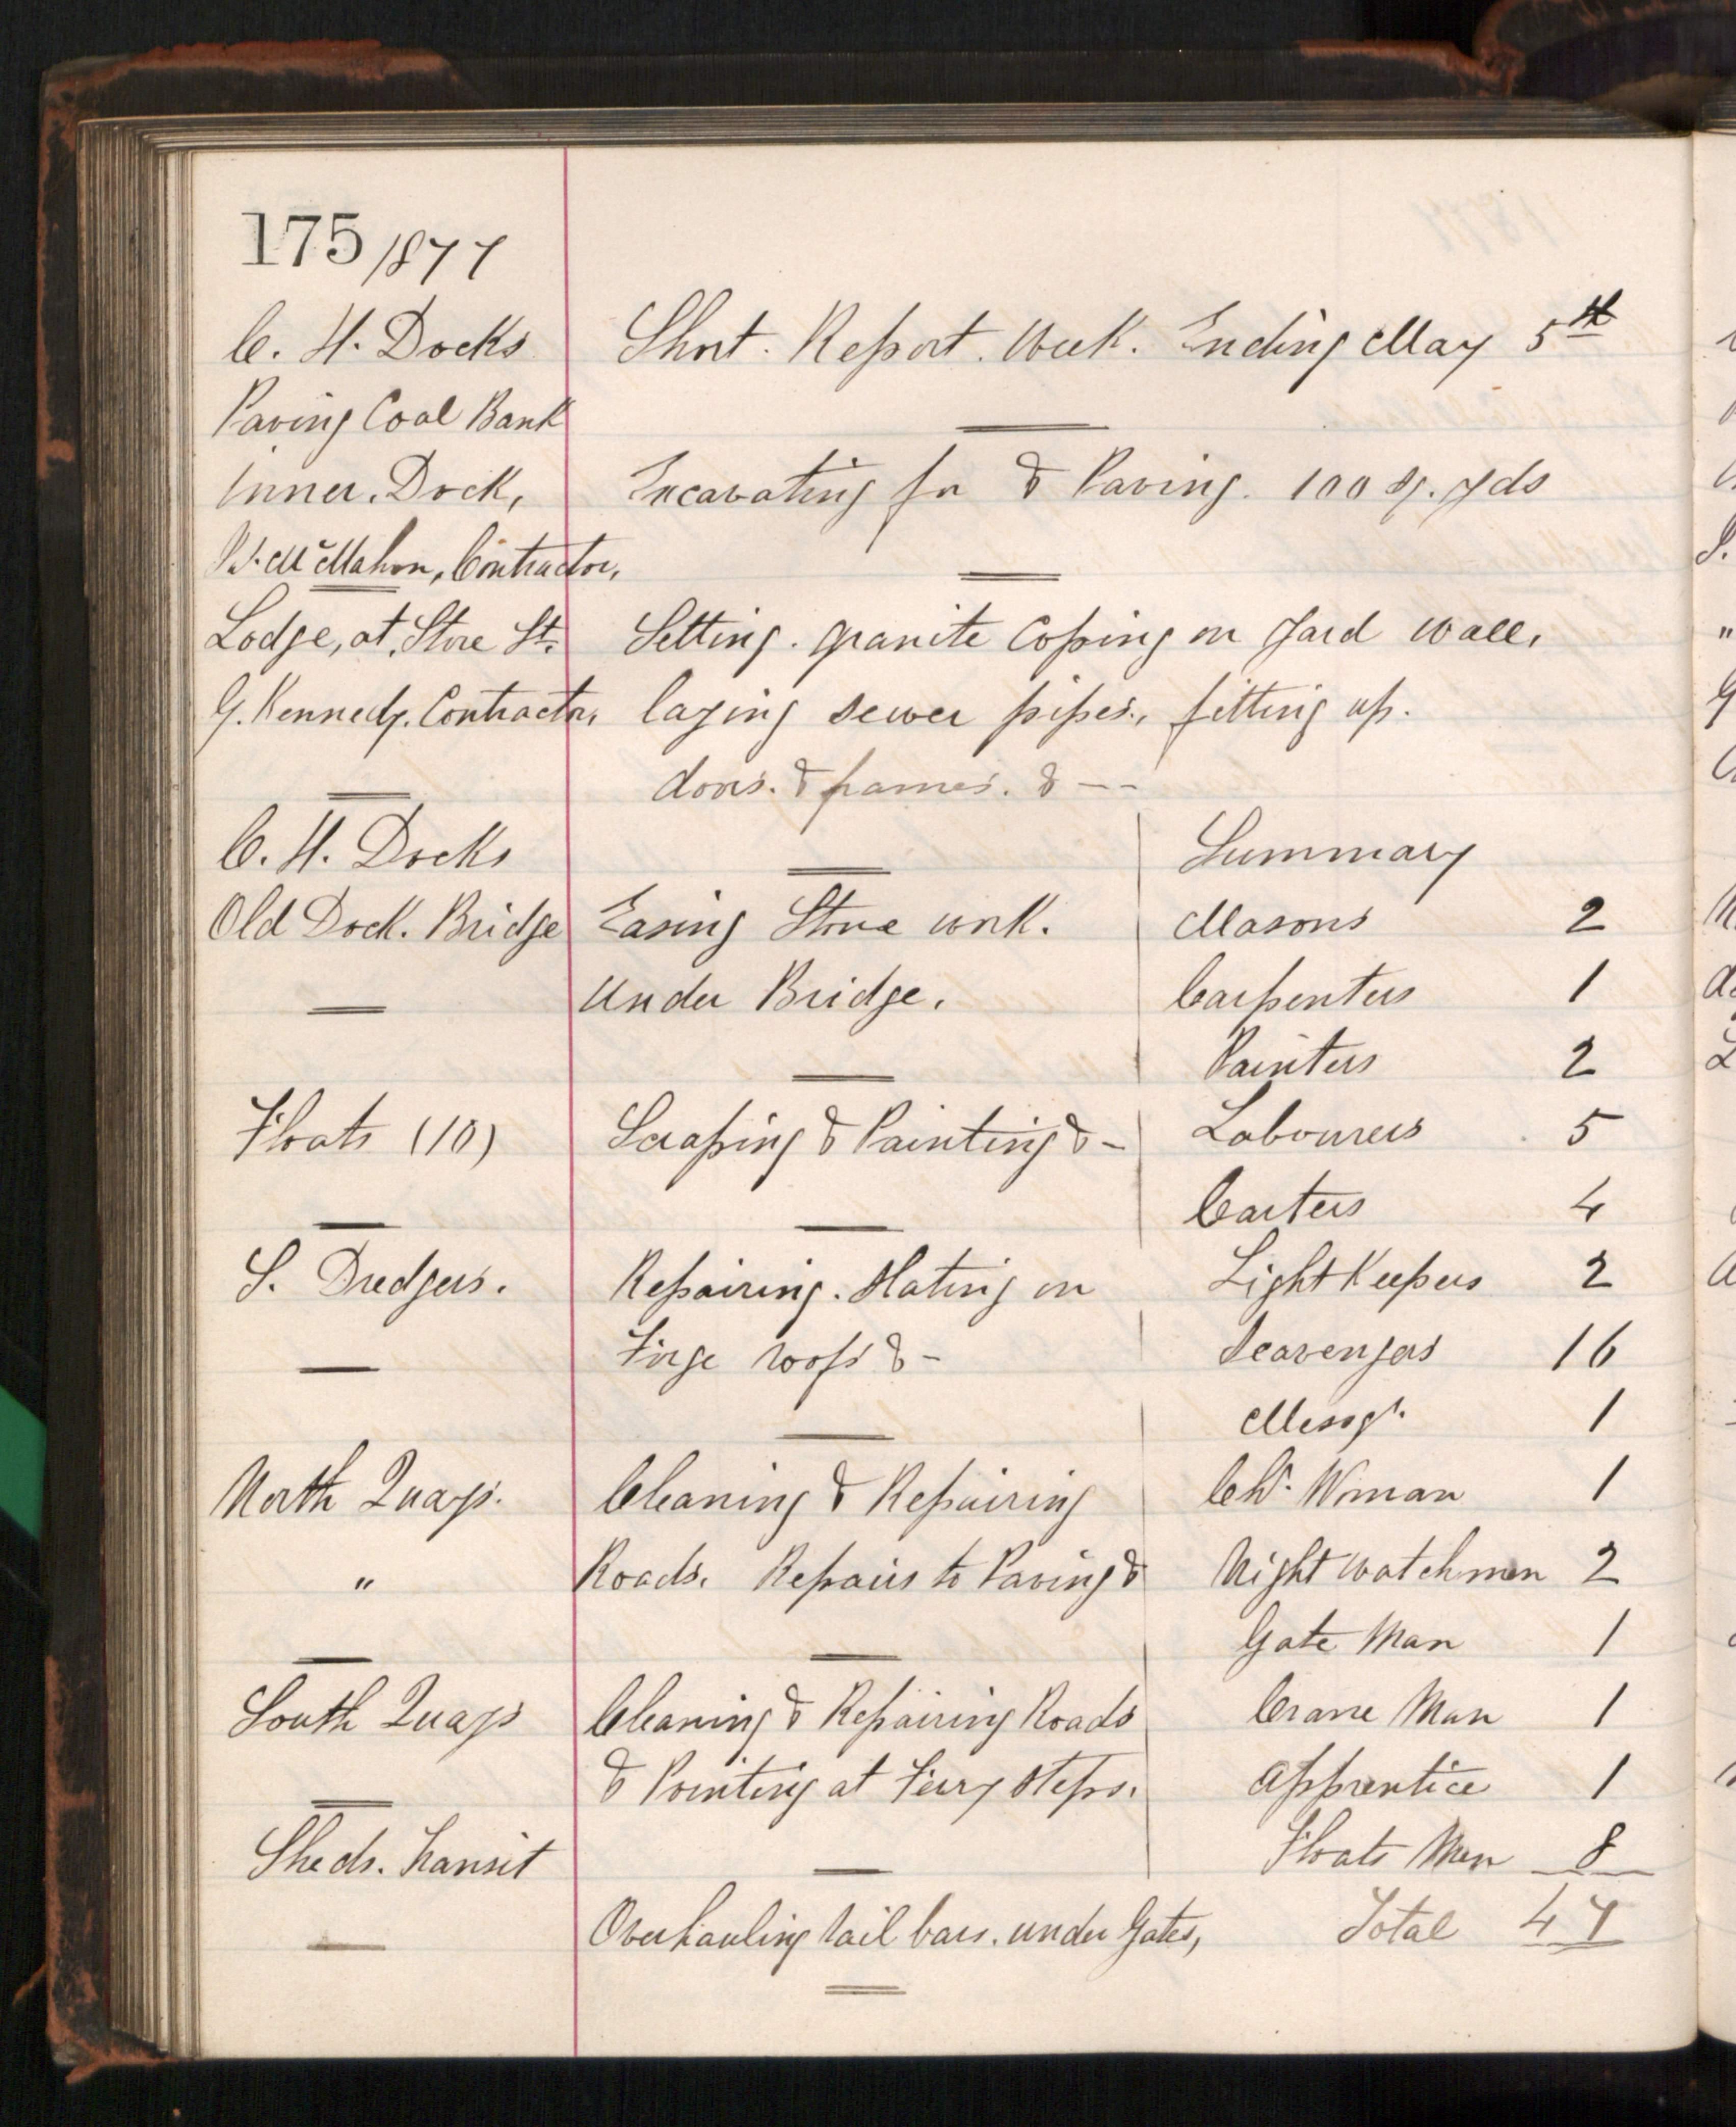 175/1877
C. H. Docks
Short. Report. Week. Ending May 5th
Paving Coal Bank
Inner. Dock,
Excavating for & Paving. 100 sq. yds
W. McMahon, Contractor,
Lodge, at, Store St.
Setting. granite Coping on Yard wall,
G. Kennedy. Contractor,
laying sewer pipes, fitting up.
doors. & frames. & --
C. H. Docks
Old Dock. Bridge
Easing Stone work.
Under Bridge.
Floats (10)
Scraping & Painting & -
S. Dredgers.
Repairing. Slating on
Forge roofs & -
North Quays.
Cleaning & Repairing
"
Roads. Repairs to Paving &
South Quays
Cleaning & Repairing Roads
& Pointing at Ferry Steps.
Sheds. Transit
Overhauling rail bars. under Gates,
Summary
Masons 2
Carpenters 1
Painters 2
Labourers 5
Carters 4
Light Keepers 2
Scavengers 16
Messgr. 1
Chr. Woman 1
Night watchmen 2
Gate Man 1
Crane Man 1
Apprentice 1
Floats Men 8
Total 47